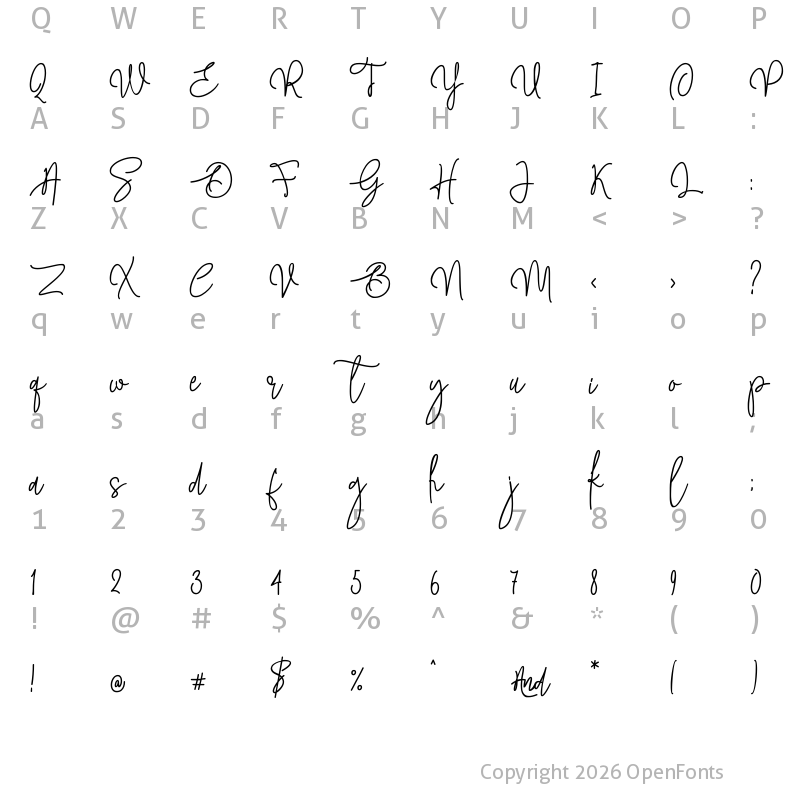 Q W E R T Y U I O P
Q W E R T Y U I O P
A S D F G H J K L :
A S D F G H J K L :
Z X C V B N M < > ?
Z X C V B N M < > ?
q w e r t y u i o p
q w e r t y u i o p
a s d f g h j k l ;
a s d f g h j k l ;
1 2 3 4 5 6 7 8 9 0
1 2 3 4 5 6 7 8 9 0
! @ # $ % ^ & * ( )
! @ # $ % ^ And * ( )
Copyright 2026 OpenFonts